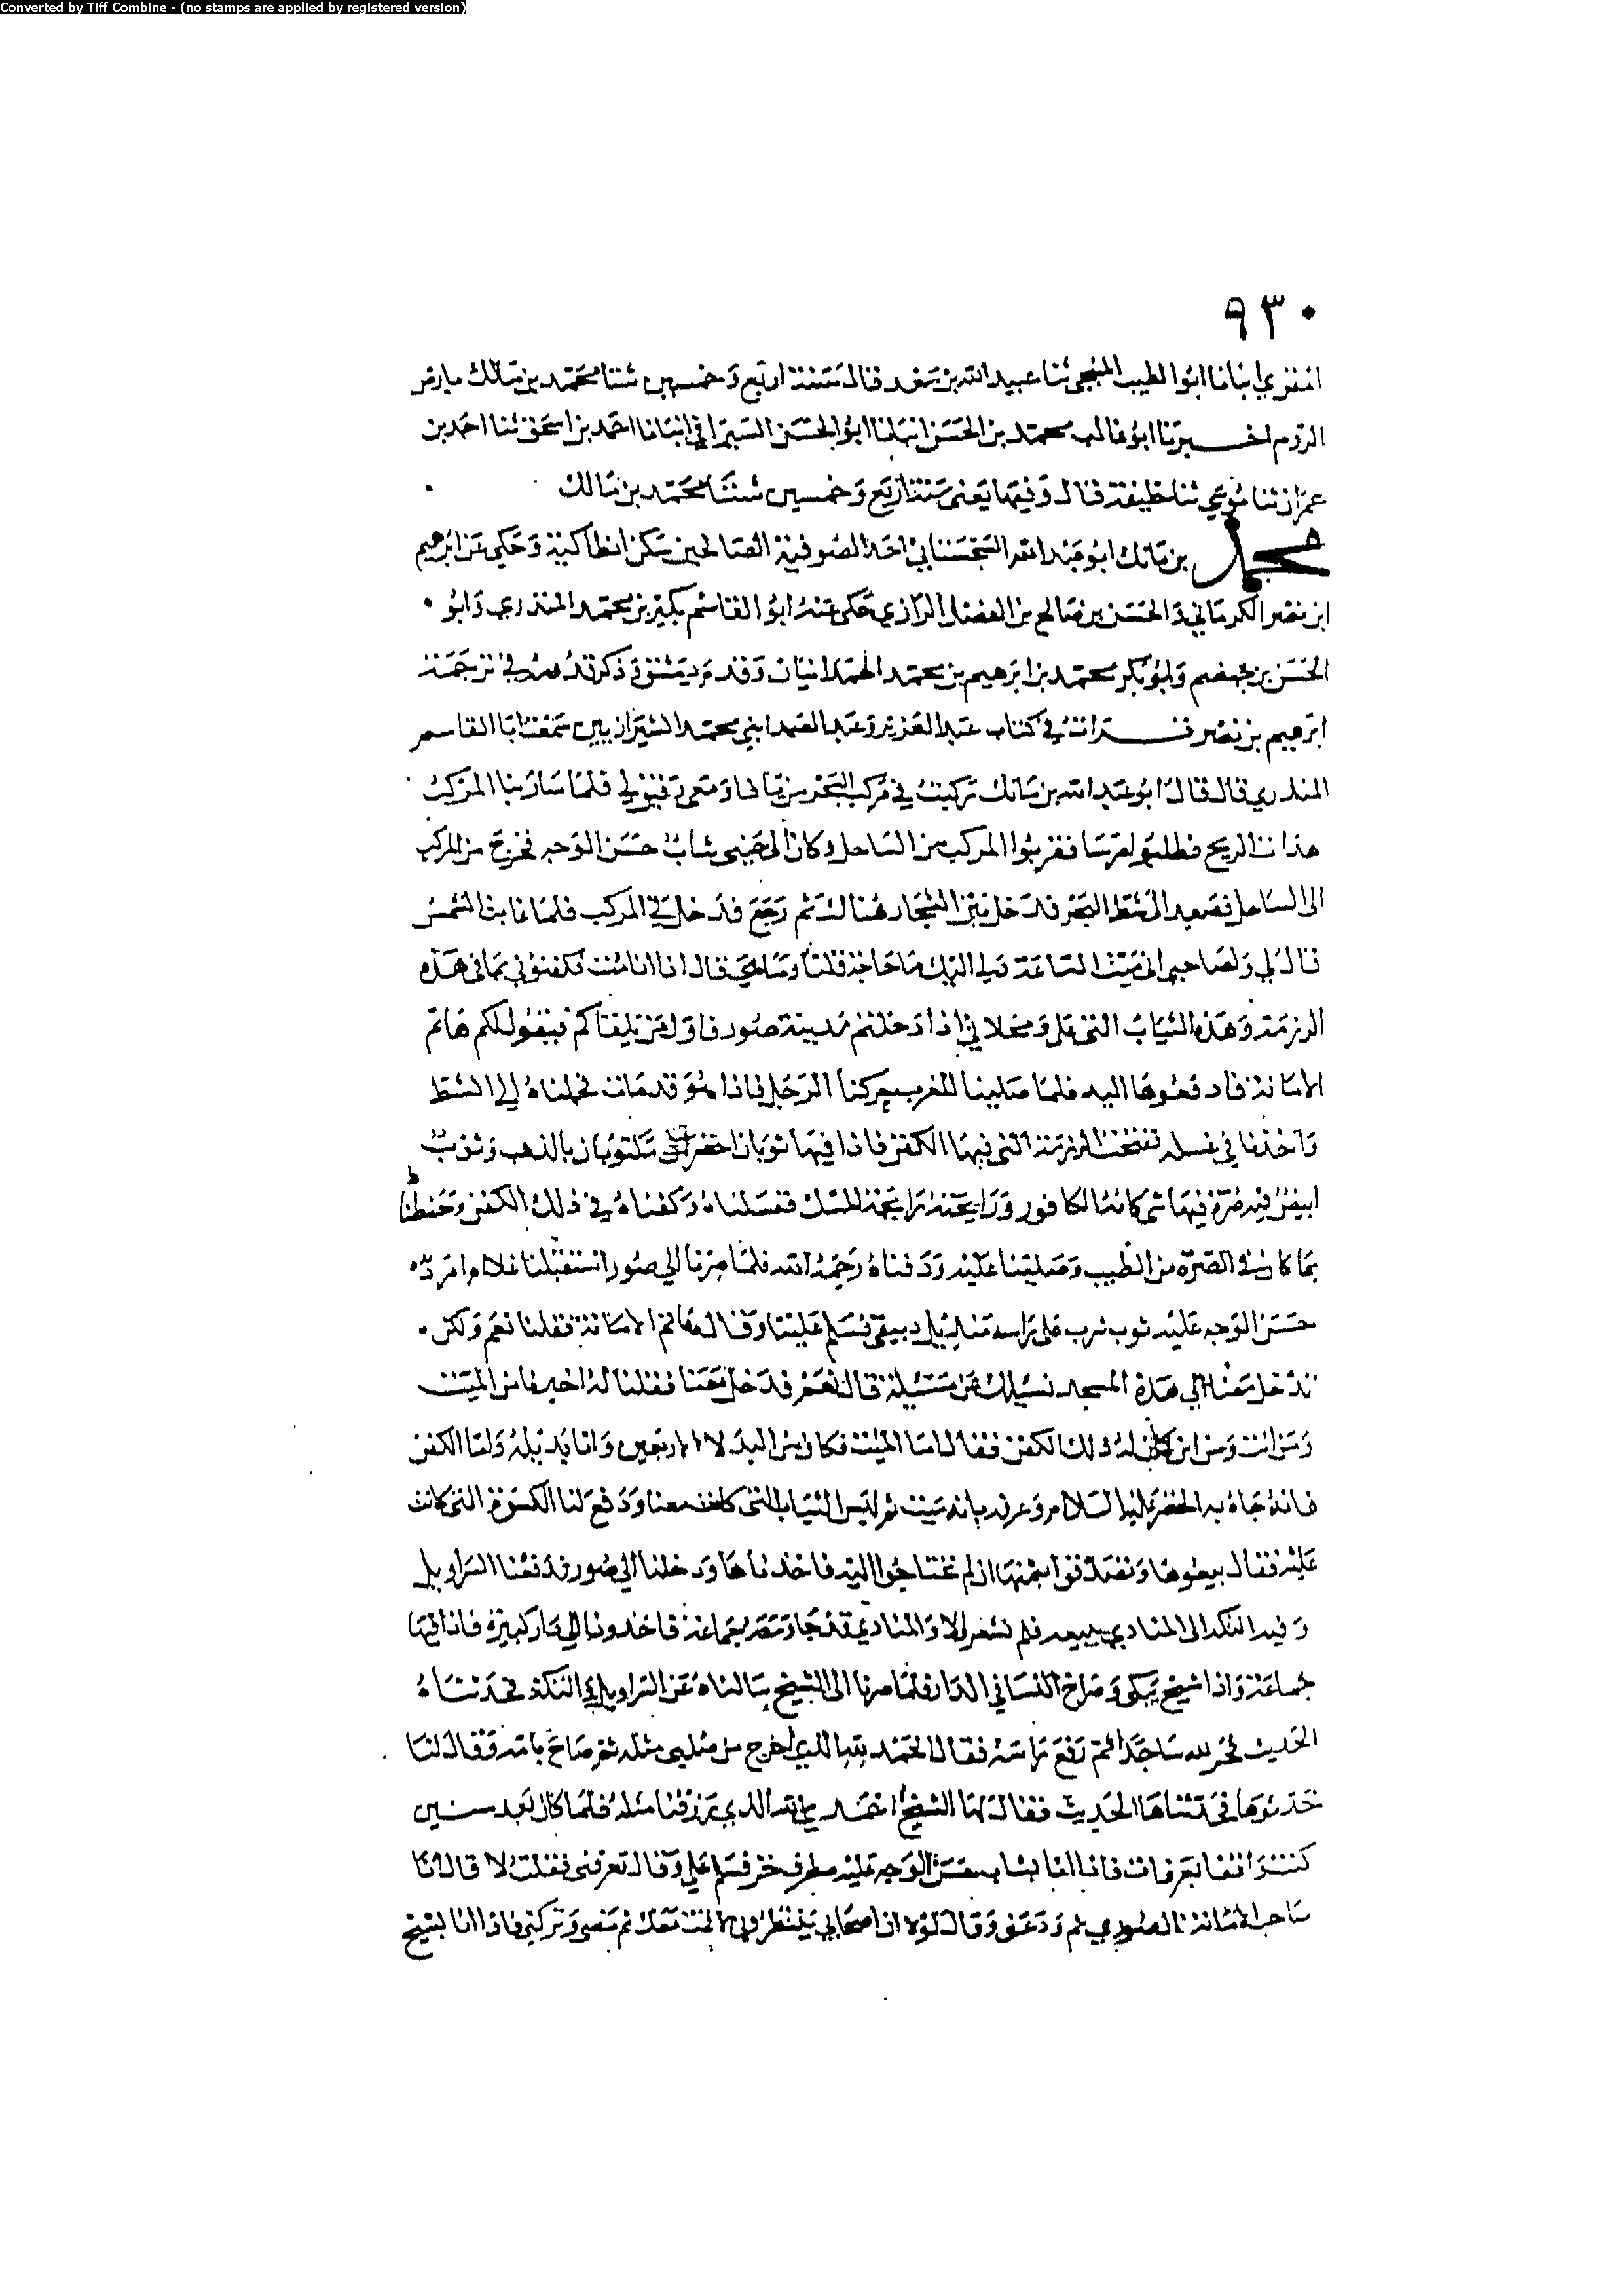 Converted by Tiff Combine - (no stamps are applied by registered version)
٩٣٠
المقري انبانا ابو الطيب المنبجي ثنا عبيد الله بن سعد قال سنة اربع وخمسين شتا محمد بن مالك بارض
الروم اخبرنا ابو غالب محمد بن الحسن انبانا ابو الحسن السيرافي انبانا احمد بن اسحق ثنا احمد بن
عمران ثنا موسى ثنا خليفة قال وفيها يعني سنة اربع وخمسين شتا محمد بن مالك
محمد بن مانك ابو عبد الله السجستاني احد الصوفية الصالحين سكن انطاكية وحكى عن ابرهيم
ابن نصر الكرماني والحسن بن صالح بن الفضل الرازي حكى عنه ابو القاسم بكير بن محمد المنذري وابو
الحسن بن جهضم وابو بكر محمد بن ابرهيم بن محمد الهمدانيان وقدم دمشق وذكر قدومه في ترجمة
ابرهيم بن نصر قرات في كتاب عبد العزيز وعبد الصمد ابني محمد الشيرازيين سمعت ابا القاسم
المنذري قال قال ابو عبد الله بن مانك ركبت في مركب البحر من يافا ومعي رفيق لي فلما سار بنا المركب
هدات الريح فطلبوا مرسا فقربوا المركب من الساحل وكان الى جنبي شاب حسن الوجه فخرج من المركب
الى الساحل فصعد الى شط البحر فدخل بين اشجار هنالك ثم رجع فدخل في المركب فلما غابت الشمس
قال لي ولصاحبي اني ميت الساعة ولي اليك ما حاجة قلنا وما هي قال اذا انا مت فكفنوني بما في هذه
الرزمة وهذه الثياب التي علي ومخلاتي اذا دخلتم مدينة صور فاول من يلقاكم فيقول لكم هاتم
الامانة فادفعوها اليه فلما صلينا المغرب حركنا الرجل فاذا هو قد مات فحملناه الى الشط
واخذنا في غسله ففتحنا الرزمة التي فيها الكفن فاذا فيها ثوبان اخضران مكتوبان بالذهب وثوب
ابيض فيه صرة فيها شي كانه الكافور ورايحته رايحة المسك فغسلناه وكفناه في ذلك الكفن وحنطناه
بما كان في الصرة من الطيب وصلينا عليه ودفناه رحمه الله فلما صرنا الى صور استقبلنا غلام امرد
حسن الوجه عليه ثوب شرب على راسه منديل دبيقي فسلم علينا وقال هاتم الامانة فقلنا نعم ولكن
تدخل معنا الى هذه المسجد نسيلك عن مسئلة قال نعم فدخل معنا فقلنا له اخبرنا من الميت
ومن انت ومن اين كان له ذلك الكفن فقال اما الميت فكان من البدلا الاربعين وانا بديله واما الكفن
فانه جاه به الخضر عليه السلام وعرفه بانه ميت ثم لبس الثياب التي كانت معنا ودفع لنا الكسوة التي كانت
عليه فقال بيعوها وتصدقوا بثمنها ان لم تحتاجوا اليه فاخذناها ودخلنا الى صور فدفعنا السراويل
وفيه التكة الى المنادي يبيعه فلم نشعر الا والمنادي قد جا ومعه جماعة فاخذونا الى دار كبيرة فاذا فيها
جماعة واذا شيخ يبكي وصراخ النسا في الدار فلما صرنا الى الشيخ سالناه عن السراويل والتكة فحدثناه
الحديث فخر لله ساجدا ثم رفع راسه فقال الحمد لله الذي اخرج من صلبي مثله ثم صاح بامه وقال لنا
حدثوها فحدثناها الحديث فقال لها الشيخ احمد الله الذي رزقنا مثله فلما كان بعد سنين
كنت واقفا بعرفات فاذا انا بشاب حسن الوجه عليه مطرف خز فسلم علي وقال تعرفني فقلت لا قال انا
صاحب الامانة الصوري ثم ودعني وقال لولا ان اصحابي ينتظروني لاقمت معك ثم مضى وتركني فاذا انا بشيخ